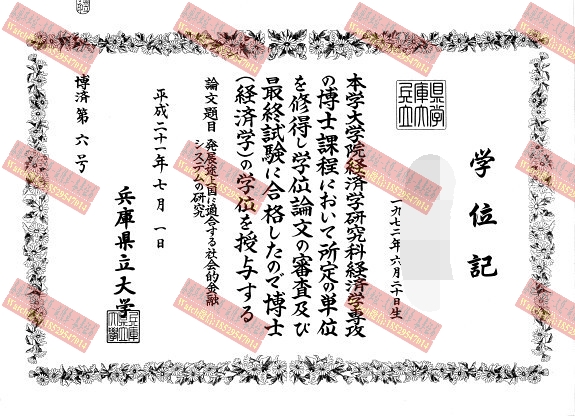 学位記
一九七二年六月二十日生
本学大学院経済学研究科経済学専攻
の博士課程において所定の単位
を修得し学位論文の審査及び
最終試験に合格したので博士
(経済学)の学位を授与する
論文題目 発展途上国に適合する社会的金融
システムの研究
平成二十一年七月一日
兵庫県立大学
博済第六号